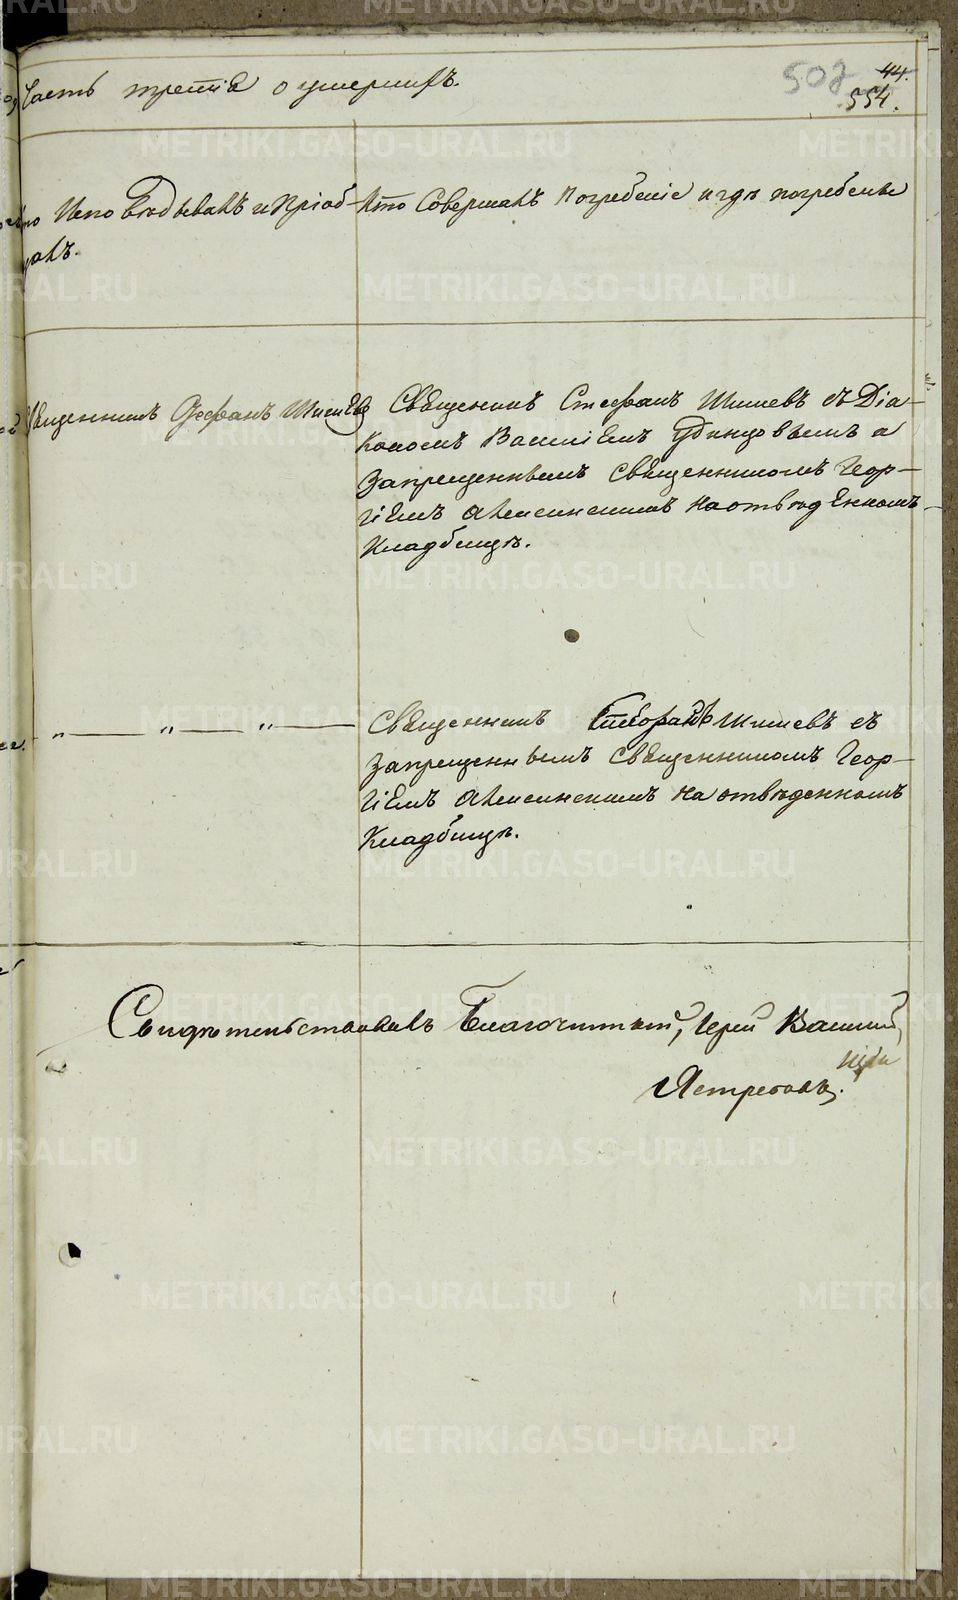 Часть третiя о умершихъ.
507
44.
554.
Исповѣдывалъ и Прiоб-
щалъ.
Кто Совершалъ Погребенiе и гдѣ погребены
Священникъ Стефанъ Шишевъ
Священникъ Стефанъ Шишевъ съ Дiа-
кономъ Василiемъ Удинцовымъ и
Запрещеннымъ Священникомъ Геор-
гiемъ на отведенномъ
Кладбищѣ.
— „ — „ — „ —
Священникъ Стефанъ Шишевъ съ
Запрещеннымъ Священникомъ Геор-
гiемъ на отведенномъ
Кладбищѣ.
Свидѣтельствовалъ Благочинный, Iерей Василий
Ястребовъ.
METRIKI.GASO-URAL.RU